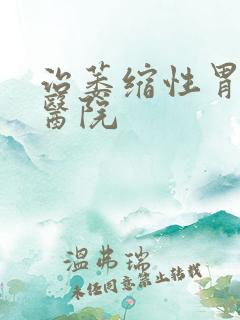 治萎缩性胃
醫院
温弗瑞
未经同意禁止转载